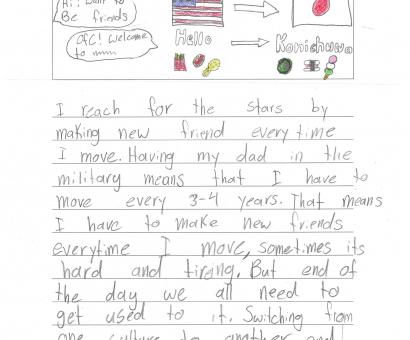 Hi! Want to
Be friends
OfC! Welcome
to
Hello
Konichuwa
I reach for the stars by
making new friend every time
I move. Having my dad in the
military means that I have to
move every 3-4 years. That means
I have to make new friends
everytime I move, sometimes its
hard and tiring. But end of
the day we all need to
get used to it. Switching from
one culture to another and